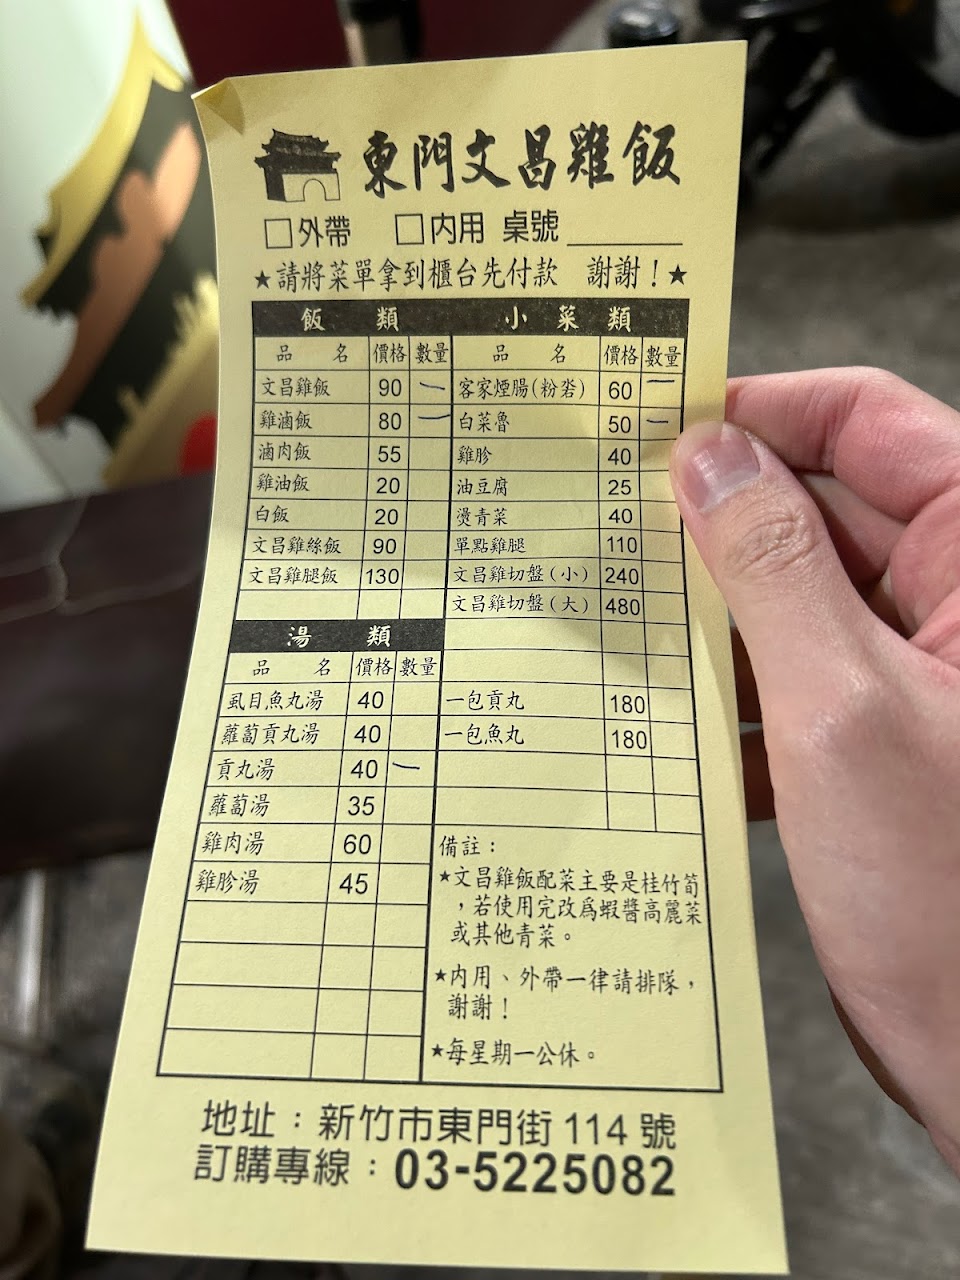 東門文昌雞飯
□外帶 □內用 桌號
★請將菜單拿到櫃台先付款 謝謝！★
飯類
品名 價格 數量
文昌雞飯 90 一
雞滷飯 80 一
滷肉飯 55
雞油飯 20
白飯 20
文昌雞絲飯 90
文昌雞腿飯 130
湯類
品名 價格 數量
虱目魚丸湯 40
蘿蔔貢丸湯 40
貢丸湯 40 一
蘿蔔湯 35
雞肉湯 60
雞胗湯 45
小菜類
品名 價格 數量
客家煙腸(粉嵙) 60 一
白菜魯 50 一
雞胗 40
油豆腐 25
燙青菜 40
單點雞腿 110
文昌雞切盤(小) 240
文昌雞切盤(大) 480
一包貢丸 180
一包魚丸 180
備註：
★文昌雞飯配菜主要是桂竹筍
，若使用完改為蝦醬高麗菜
或其他青菜。
★內用、外帶一律請排隊，
謝謝！
★每星期一公休。
地址：新竹市東門街114號
訂購專線：03-5225082